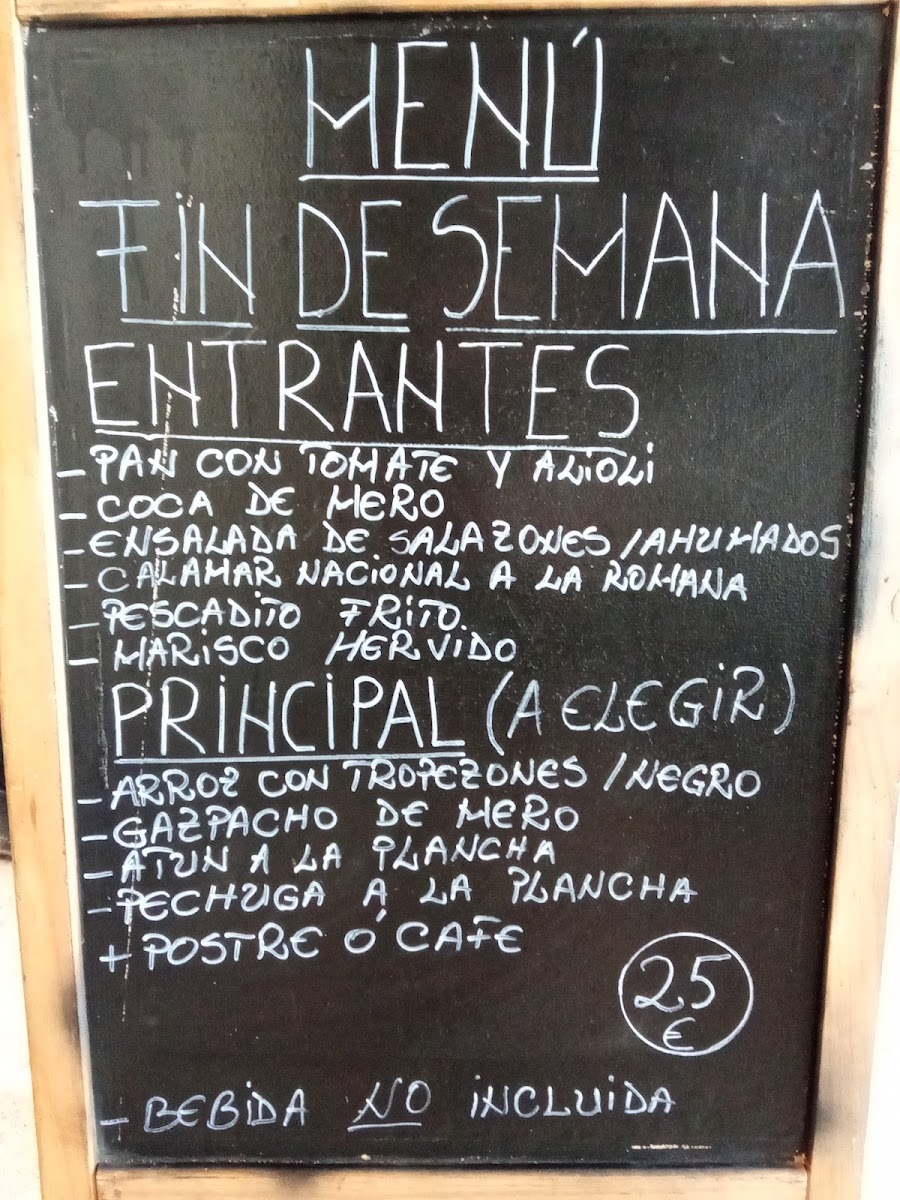 MENÚ
FIN DE SEMANA
ENTRANTES
- PAN CON TOMATE Y ALIOLI
- COCA DE MERO
- ENSALADA DE SALAZONES / AHUMADOS
- CALAMAR NACIONAL A LA ROMANA
- PESCADITO FRITO.
- MARISCO HERVIDO
PRINCIPAL (A ELEGIR)
- ARROZ CON TROPEZONES / NEGRO
- GAZPACHO DE MERO
- ATUN A LA PLANCHA
- PECHUGA A LA PLANCHA
+ POSTRE Ó CAFE
25
€
- BEBIDA NO INCLUIDA